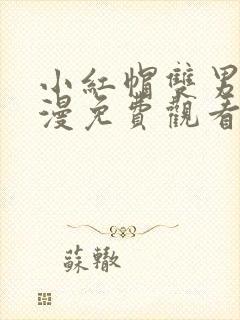 小紅帽雙男
漫免費觀看
蘇轍